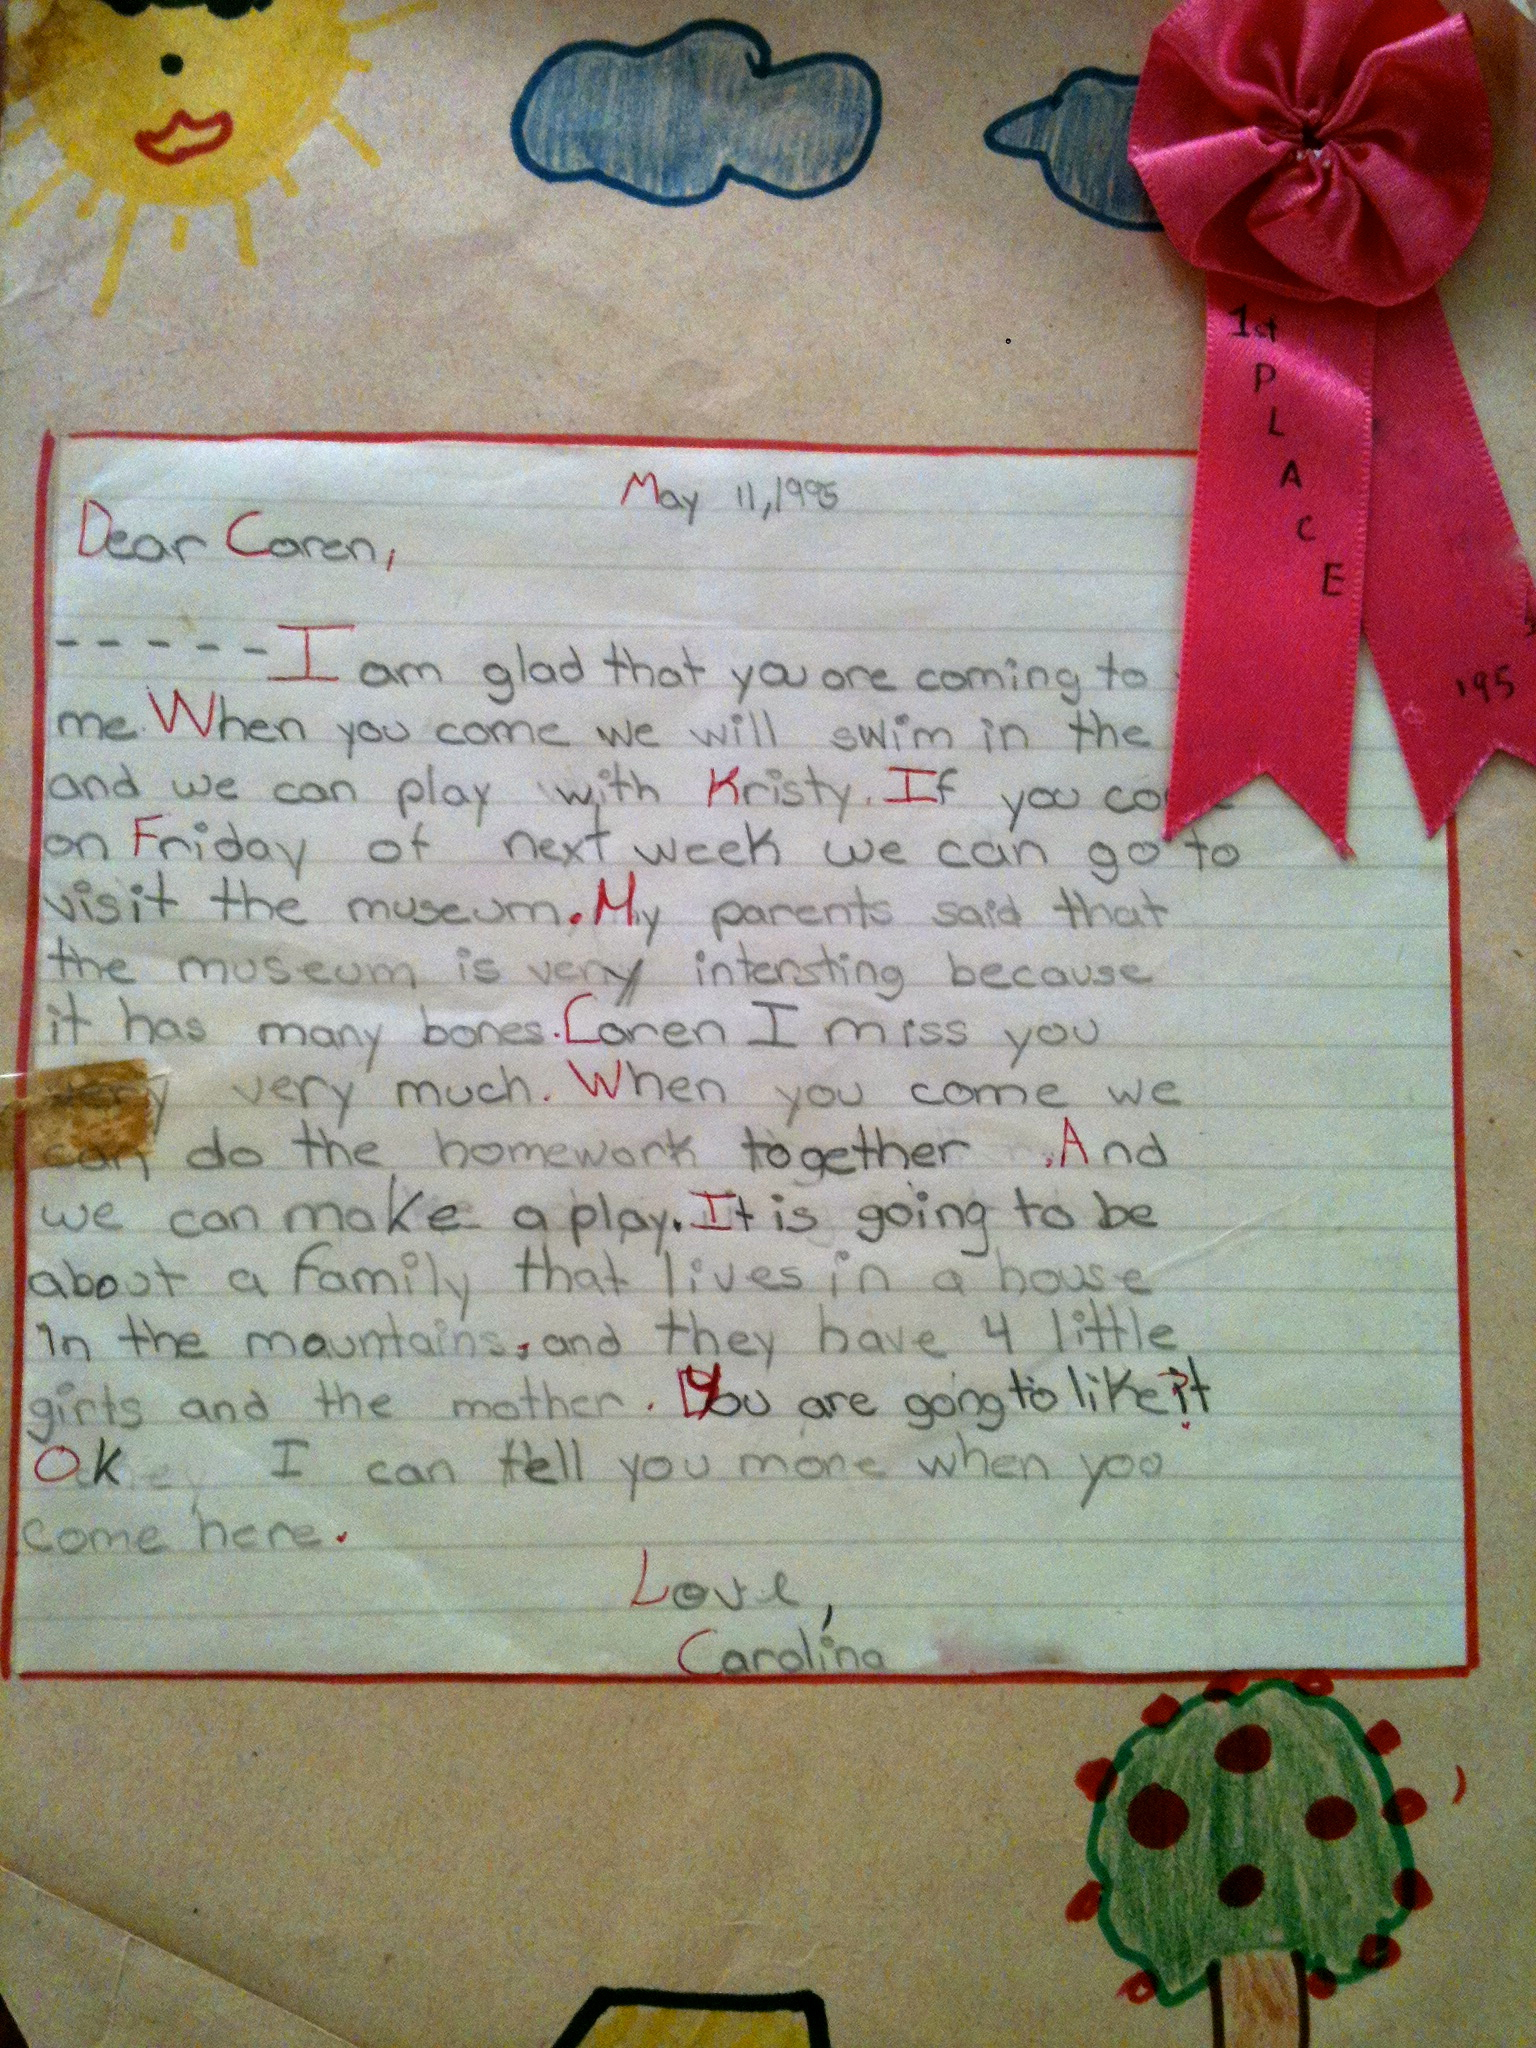 1st
P
L
A
C
E
'95
May 11, 1995
Dear Caren,
- - - - - I am glad that you are coming to
me. When you come we will swim in the
and we can play with Kristy. If you
on Friday of next week we can go to
visit the museum. My parents said that
the museum is very intersting because
it has many bones. Caren I miss you
very very much. When you come we
can do the homework together. And
we can make a play. It is going to be
about a family that lives in a house
in the mountains, and they have 4 little
girls and the mother. You are going to like it?
Ok I can tell you more when you
come here.
Love,
Carolina